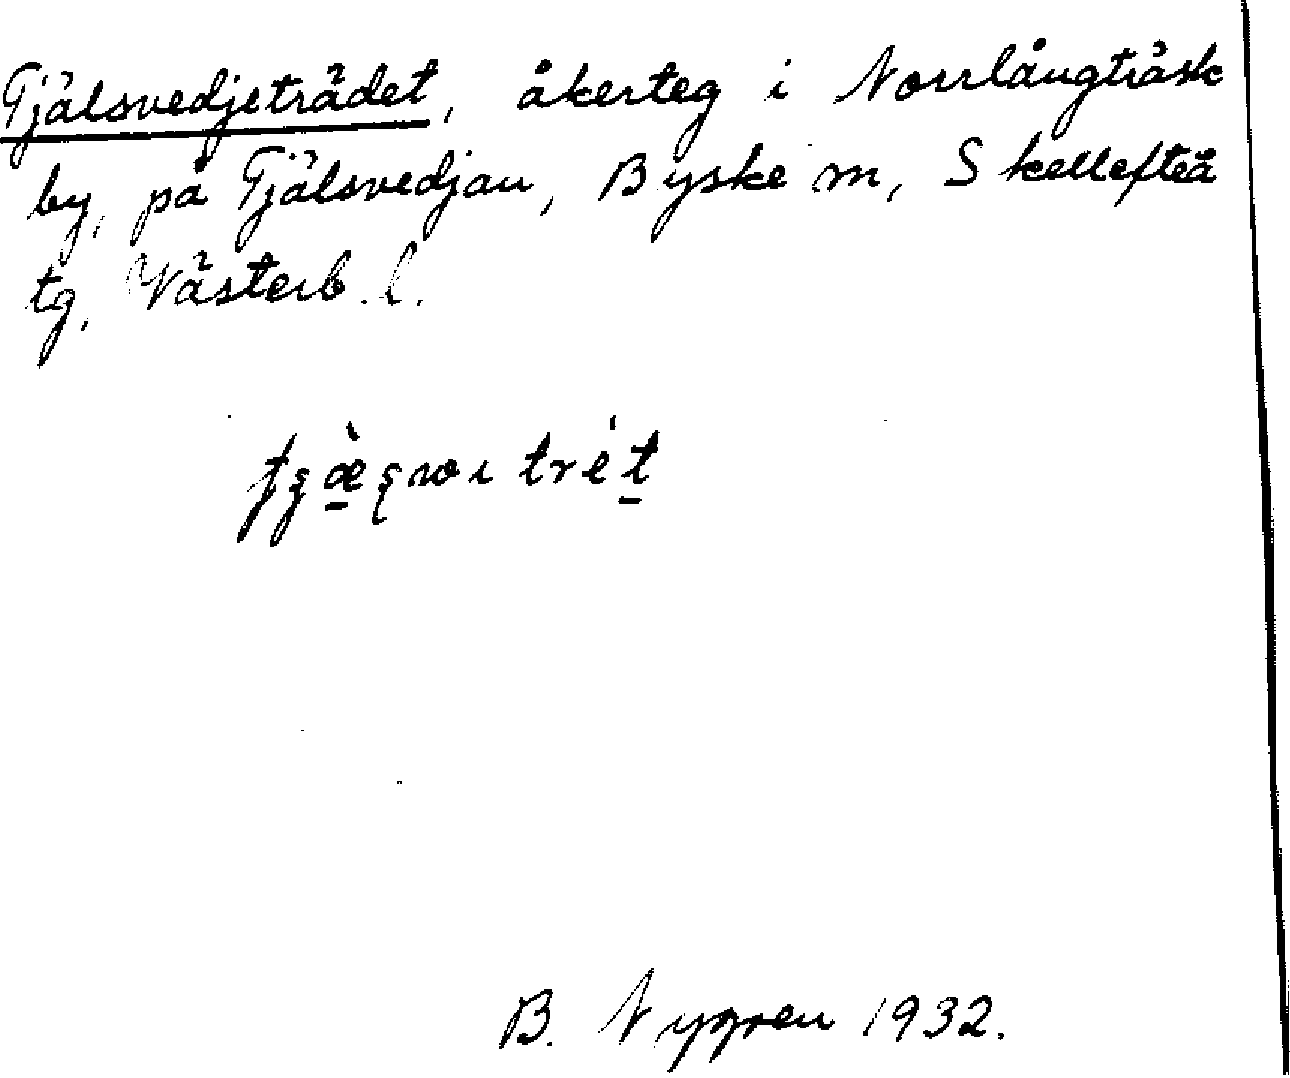 Tjälsvedjeträdet, åkerteg i Norrlångträsk
by, på Tjälsvedjan, Byske m, Skellefteå
tg, Västerb. l.
B. Nygren 1932.